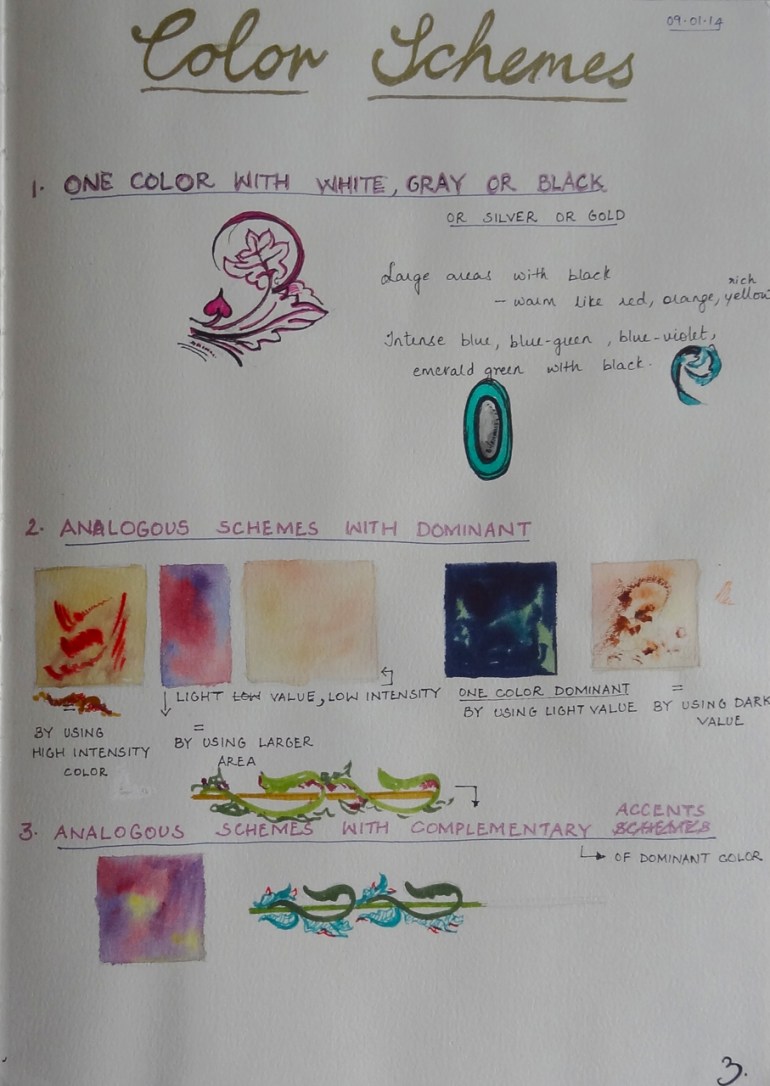 09·01·14
Color Schemes
1. ONE COLOR WITH WHITE, GRAY OR BLACK
OR SILVER OR GOLD
Large areas with black
– warm like red, orange, rich yellow
Intense blue, blue-green, blue-violet,
emerald green with black.
2. ANALOGOUS SCHEMES WITH DOMINANT
=
BY USING
HIGH INTENSITY
COLOR
LIGHT LOW VALUE, LOW INTENSITY
=
BY USING LARGER
AREA
ONE COLOR DOMINANT
BY USING LIGHT VALUE
=
BY USING DARK
VALUE
3. ANALOGOUS SCHEMES WITH COMPLEMENTARY SCHEMES ACCENTS
OF DOMINANT COLOR
3.